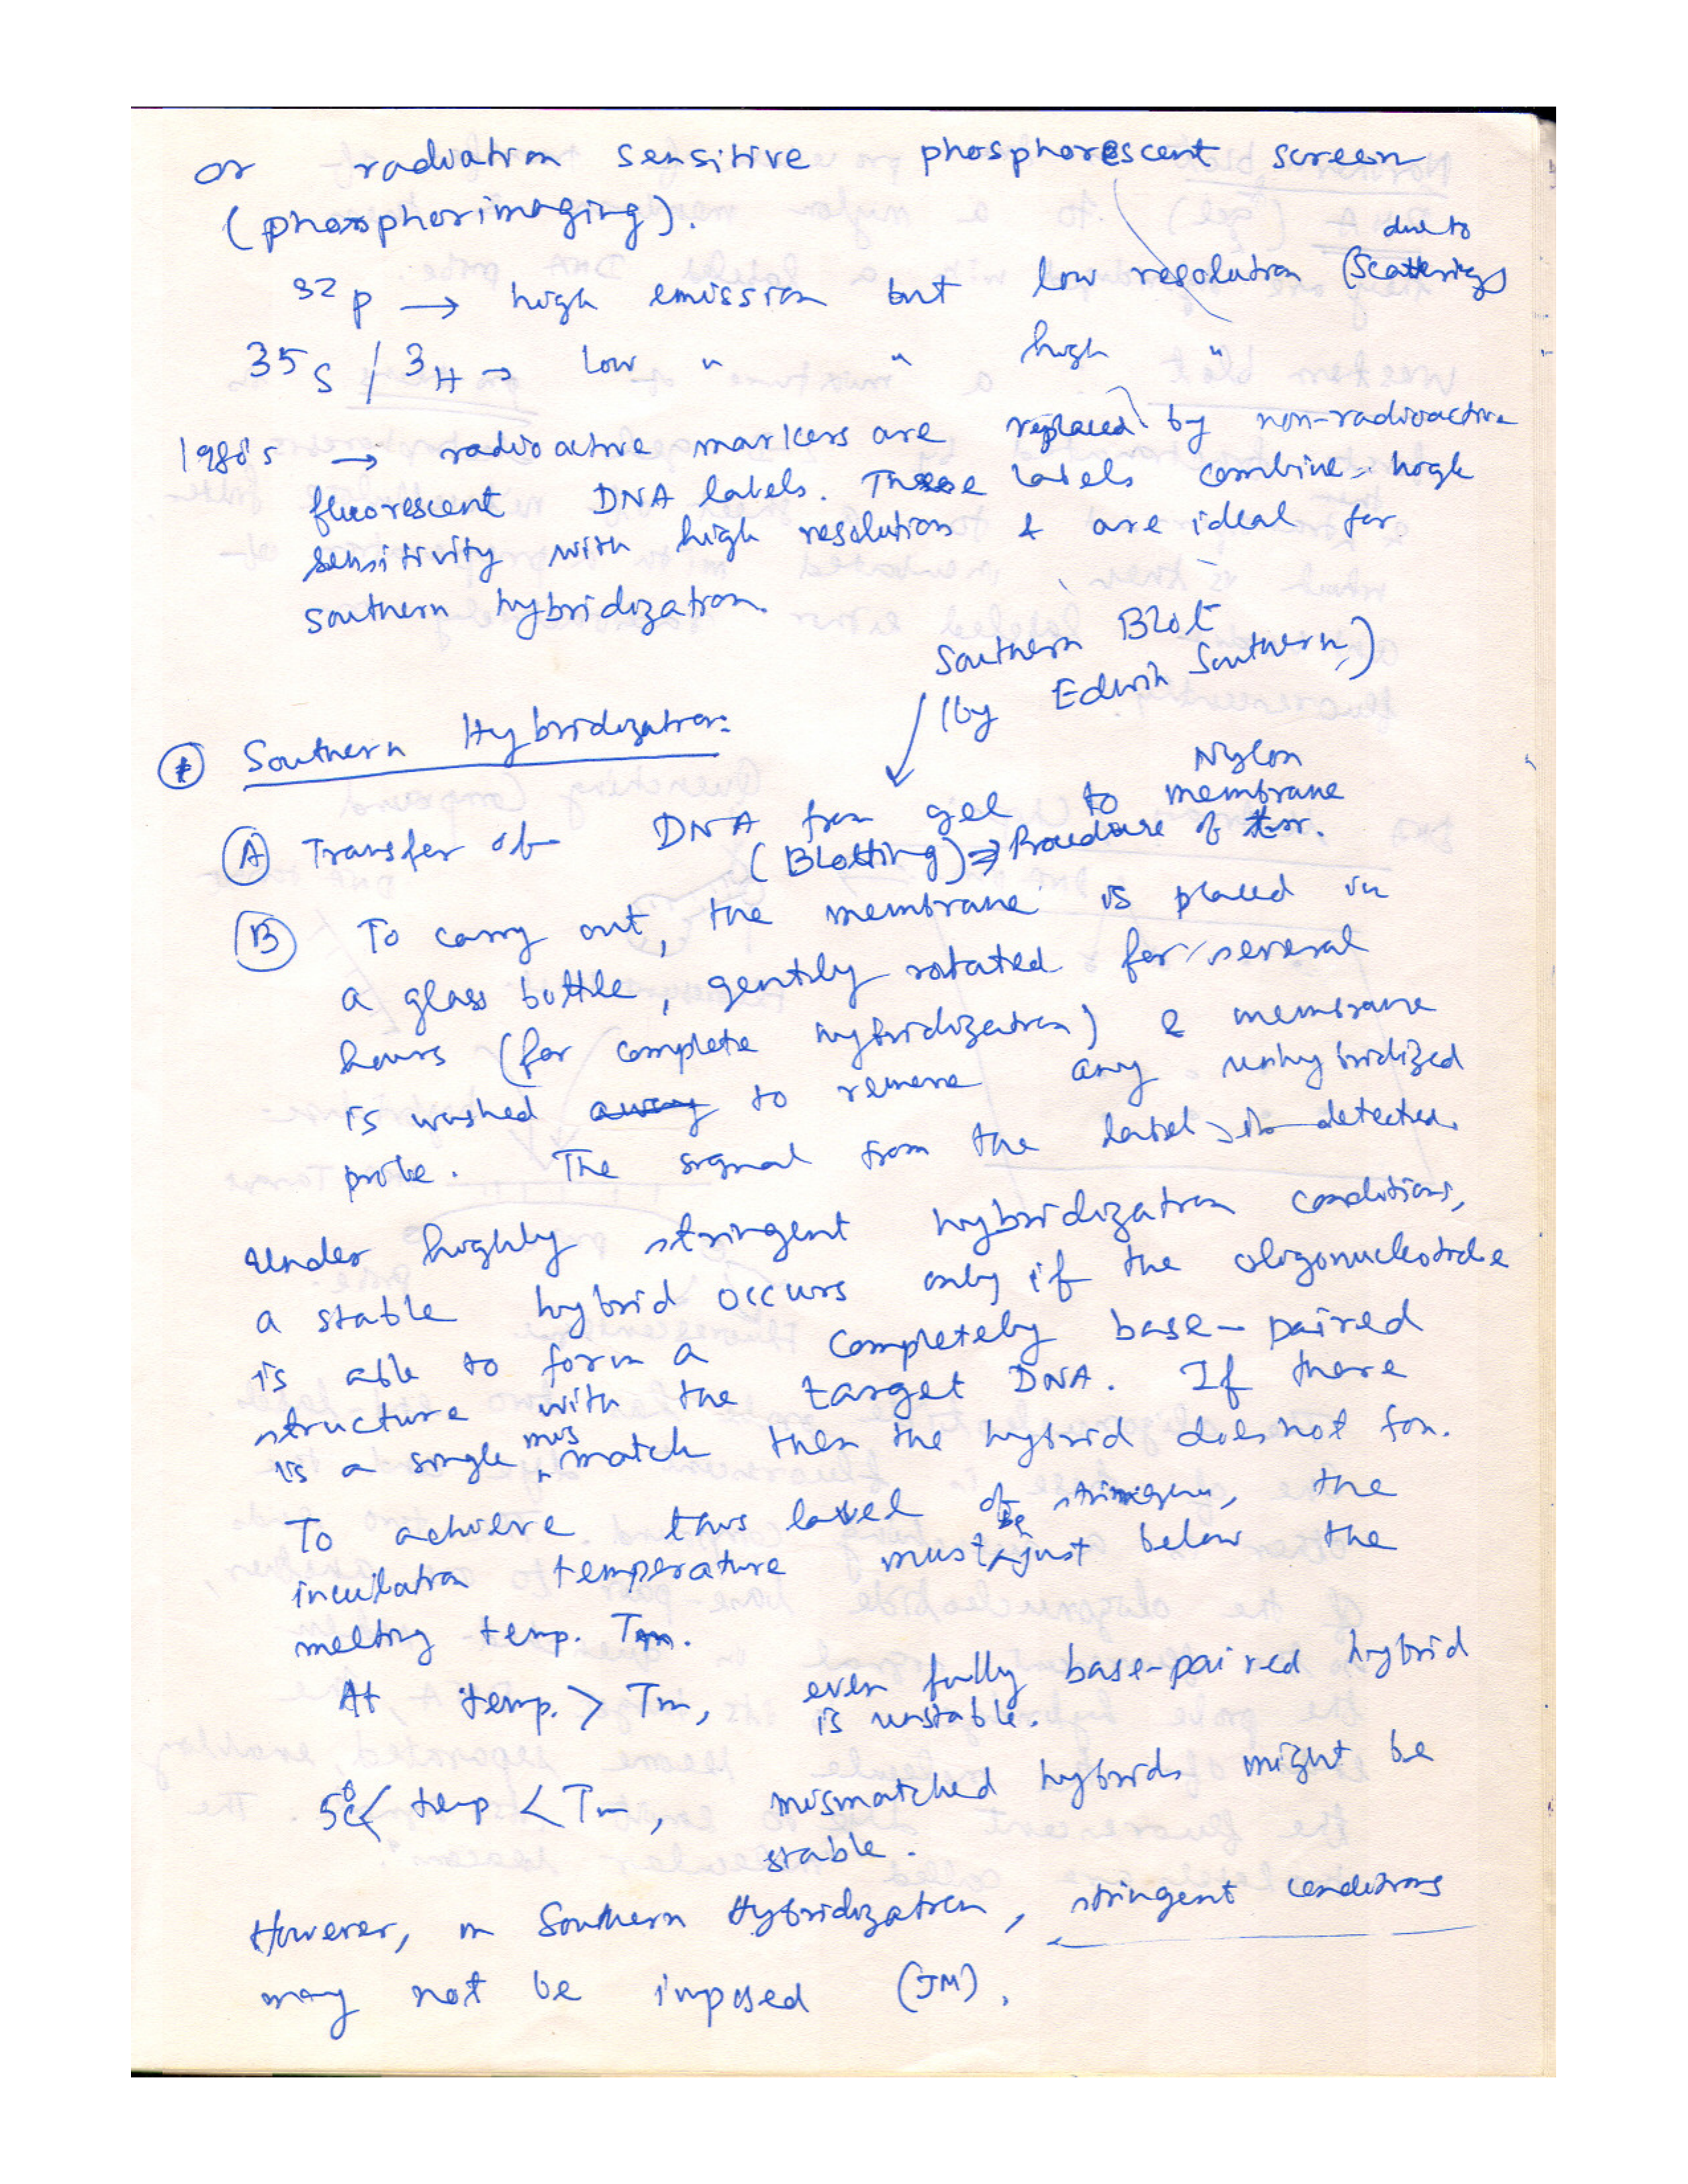 or radiation sensitive phosphorescent screen
(phosphorimaging).
due to
32P → high emission but low resolution (Scattering)
35S / 3H → Low " " high "
1980's → radioactive markers are replaced by non-radioactive
fluorescent DNA labels. These labels combine high
sensitivity with high resolution & are ideal for
Southern hybridization.
Southern Blot
(by Edwin Southern)
Southern Hybridization:
Nylon
(A) Transfer of DNA from gel to membrane
(Blotting) ⇒ Procedure of
(B) To carry out, the membrane is placed in
a glass bottle, gently rotated for several
hours (for complete hybridization) & membrane
is washed away to remove any unhybridized
probe. The signal from the label is detected.
Under highly stringent hybridization conditions,
a stable hybrid occurs only if the oligonucleotide
is able to form a completely base-paired
structure with the target DNA. If there
is a single mismatch then the hybrid does not for.
To achieve this level of the
incubation temperature must be just below the
melting temp. Tm.
At temp. > Tm, even fully base-paired hybrid
is unstable.
5°C< temp < Tm, mismatched hybrids might be
stable.
However, in Southern Hybridization, stringent conditions
may not be imposed (JM).